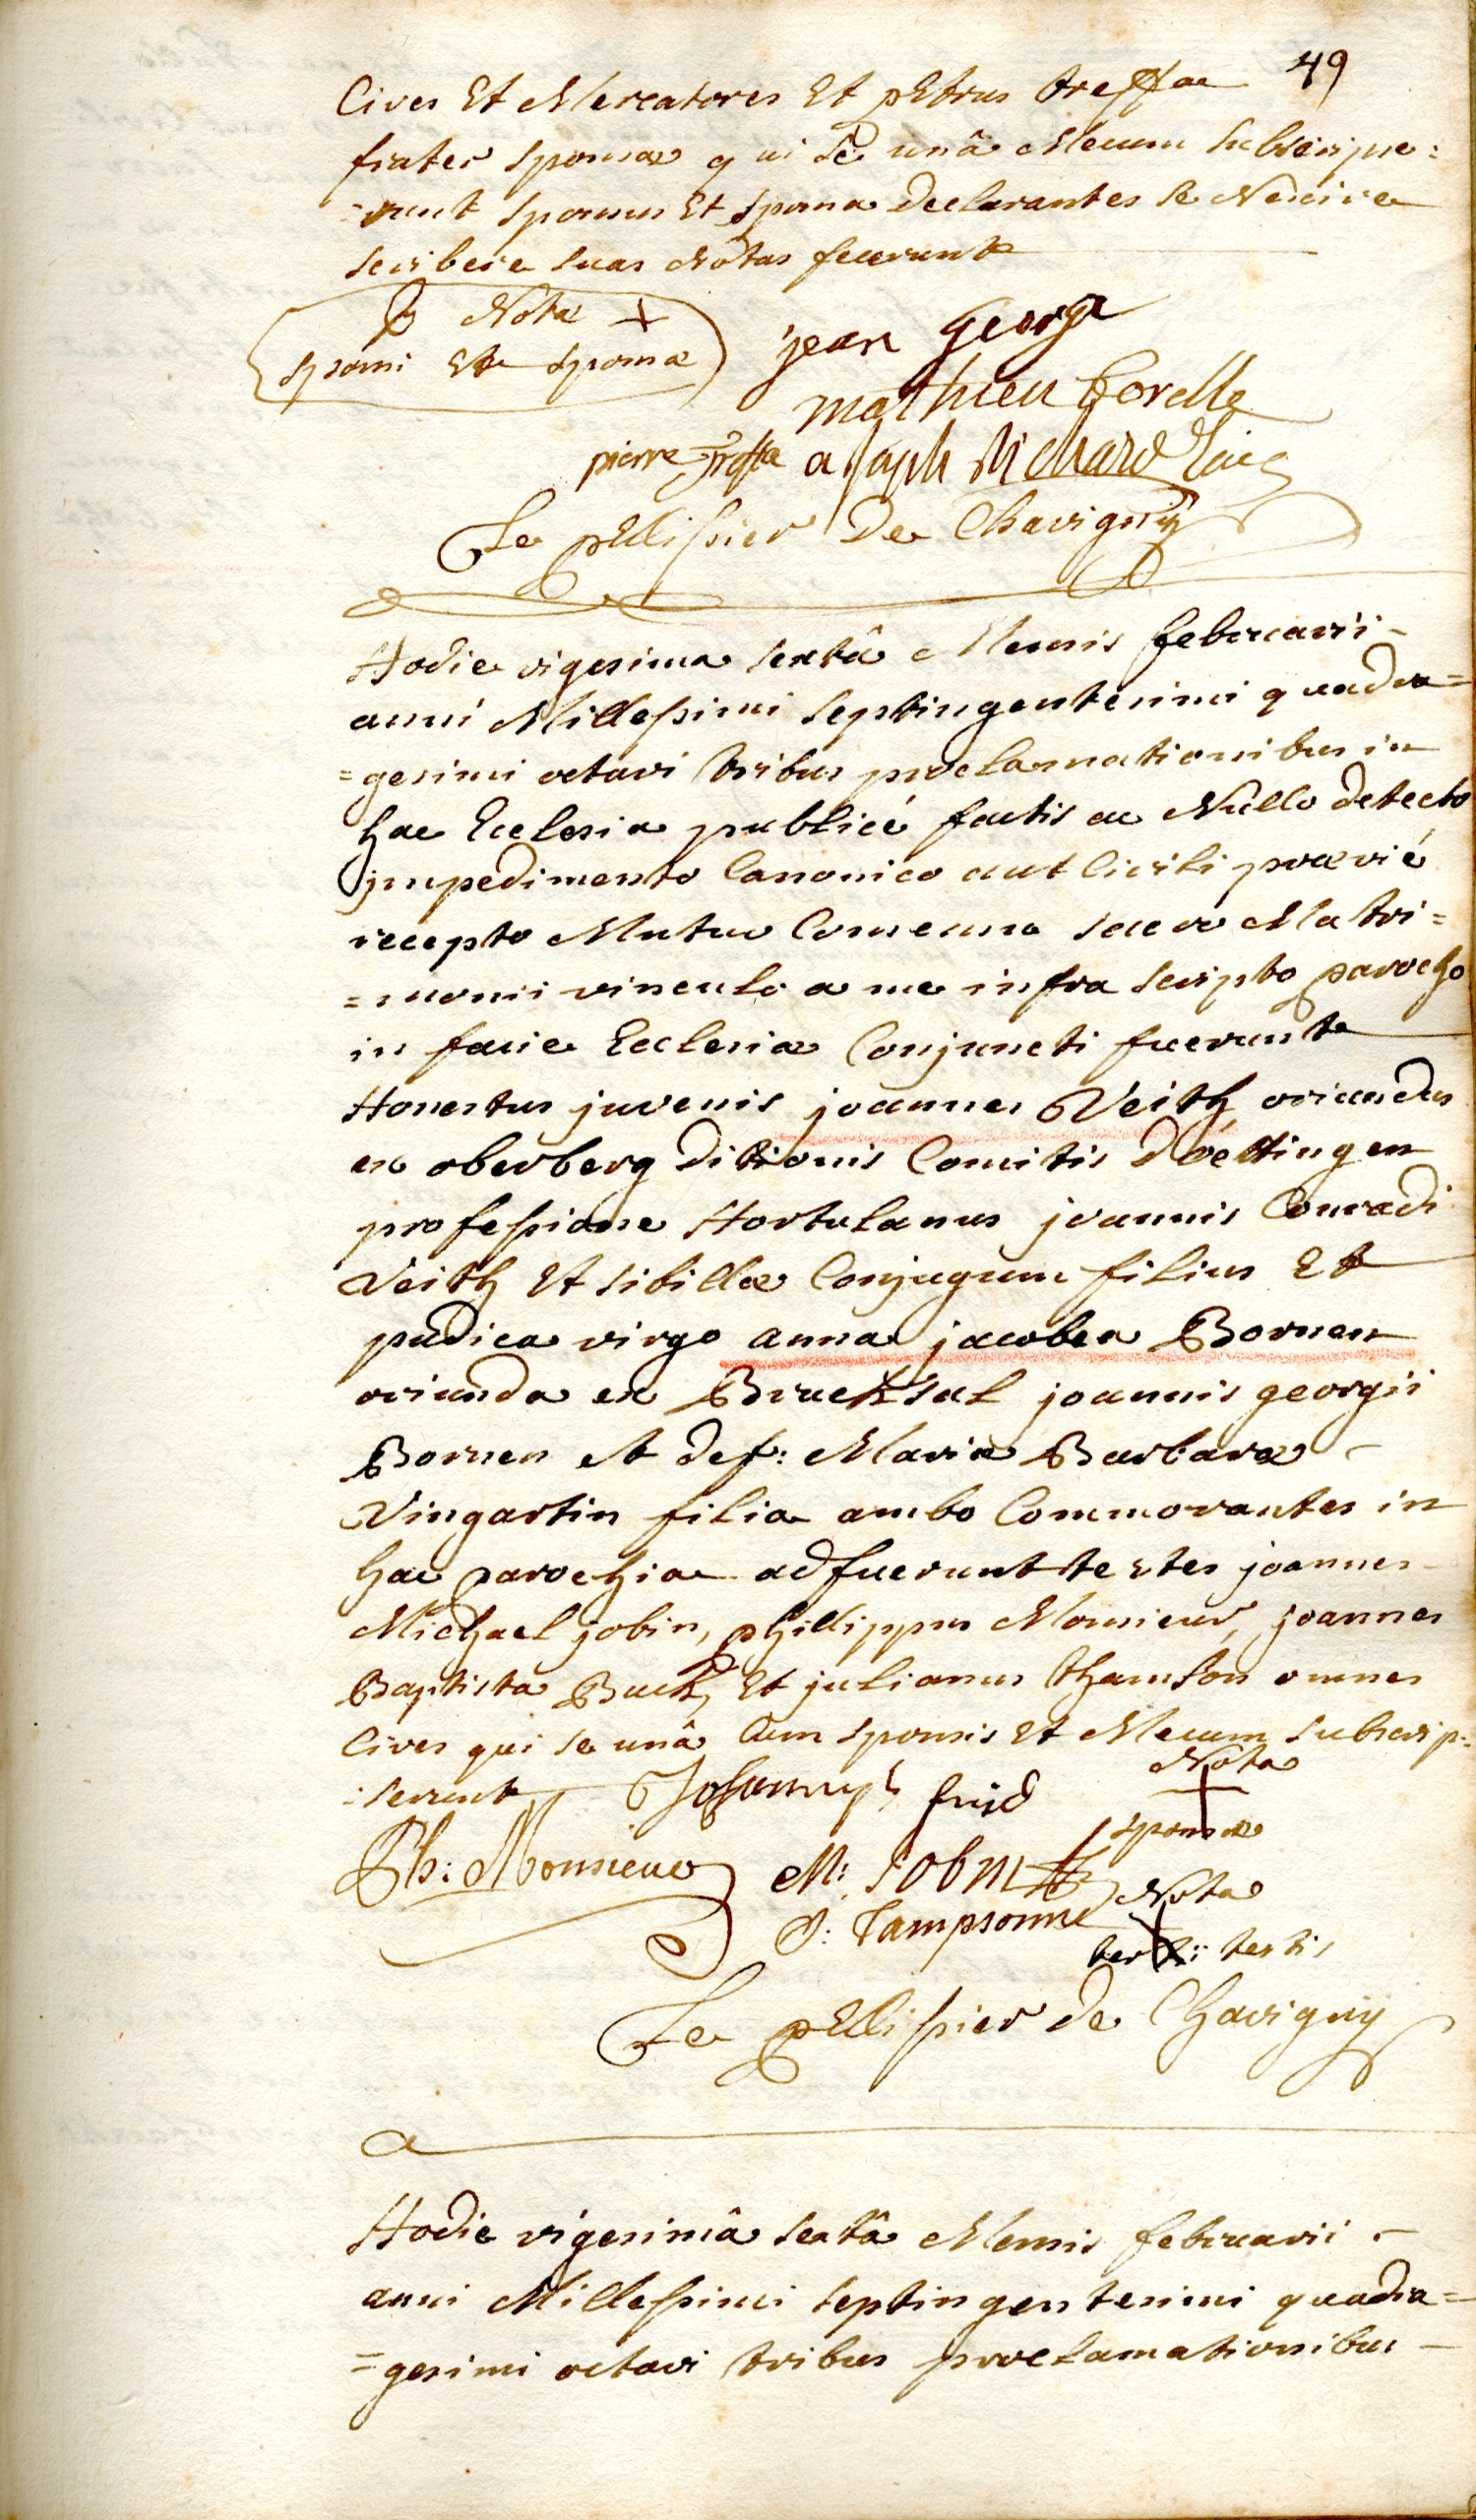 49
Cives Et Mercatores Et pEtrus treffae
frater sponsae qui se unâ Mecum subscripse:
=runt sponsus Et sponsa Declarantes se Nescire
scribere suas Notas fecerunt
Nota +
sponsi Et sponsae
jean George
mathieu Corelle
pierre asaph Richard
Le pElissier De Chavigny
Hodie vigesima sextâ Mensis februarii
anni Millessimi septingentesimi quadra=
=gesimi octavi tribus proclamationibus in
hac Ecclesia publicé factis ac Nullo detecto
jmpedimento Canonico aut Civili praevié
recepto Mutuo Consensu sacro Matri=
=monii vinculo a me infra scripto parocho
in facie Ecclesiae Conjuncti fuerunt
Honestus juvenis joannes Veith oriundus
ex oberberg ditionis Comitis d'oéttingen
professione Hortulanus joannis Conradi
Veith Et sibillae Conjugum filius Et
pudica virgo anna jacobea Bornen
oriunda ex Brucksal joannis georgii
Bornen et def: Mariae Barbarae
Vingartin filia ambo Commorantes in
hac parochia adfuerunt testes joannes
Michael jobin, philippus Monsieur, joannes
Baptista Buch, Et julianus thamson omnes
Cives qui se unâ Cum sponsis Et Mecum subscrip:
:serunt
Nota
sponsae
Ph: Monsieur M: Jobin
Nota
J: Tampsonne
tertii testis
Le pEllissier de Chavigny
Hodie vigesimâ sextâ Mensis februarii
anni Millessimi septingentesimi quadra=
=gesimi octavi tribus proclamationibus